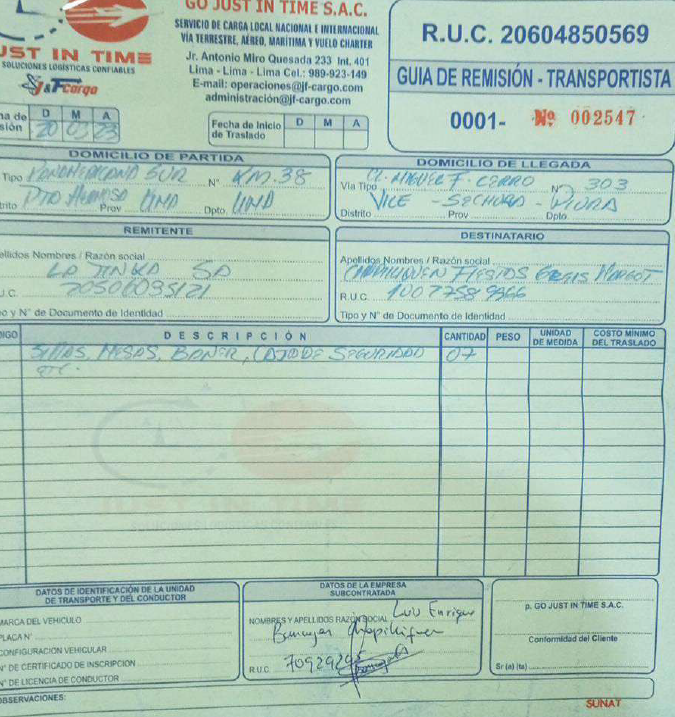 GO JUST IN TIME S.A.C.
SERVICIO DE CARGA LOCAL NACIONAL E INTERNACIONAL
VÍA TERRESTRE, AÉREO, MARÍTIMA Y VUELO CHARTER
Jr. Antonio Miro Quesada 233 Int. 401
Lima - Lima - Lima Cel.: 989-923-149
E-mail: operaciones@jf-cargo.com
administración@jf-cargo.com
UST IN TIME
SOLUCIONES LOGÍSTICAS CONFIABLES
J&F Cargo
R.U.C. 20604850569
GUIA DE REMISIÓN - TRANSPORTISTA
0001- Nº 002547
ha de
sión
D M A
20 03 23
Fecha de Inicio
de Traslado
D M A
DOMICILIO DE PARTIDA
Tipo PANAMERICANA SUR N° KM.38
trito PTO HERMOSO Prov LIMA Dpto LIMA
DOMICILIO DE LLEGADA
Via Tipo MIGUEL F. CERRO N° 303
Distrito VICE - SECHURA - PIURA
Prov Dpto
REMITENTE
pellidos Nombres / Razón social
LA TINKA SA
U.C. 20506035121
po y N° de Documento de Identidad
DESTINATARIO
Apellidos Nombres / Razón social
FIESTAS
R.U.C.
Tipo y N° de Documento de Identidad
IGO DESCRIPCIÓN CANTIDAD PESO UNIDAD DE MEDIDA COSTO MÍNIMO DEL TRASLADO
SILLAS, MESAS, BANER, CAJA DE SEGURIDAD 07
ETC.
JUST IN TIME
DATOS DE IDENTIFICACIÓN DE LA UNIDAD
DE TRANSPORTE Y DEL CONDUCTOR
MARCA DEL VEHICULO
PLACA N°
CONFIGURACIÓN VEHICULAR
N° DE CERTIFICADO DE INSCRIPCION
N° DE LICENCIA DE CONDUCTOR
DATOS DE LA EMPRESA
SUBCONTRATADA
NOMBRES Y APELLIDOS RAZÓN SOCIAL Luis Enrique
R.U.C. 70929295
p. GO JUST IN TIME S.A.C.
Conformidad del Cliente
Sr (a) (ta)
OBSERVACIONES:
SUNAT